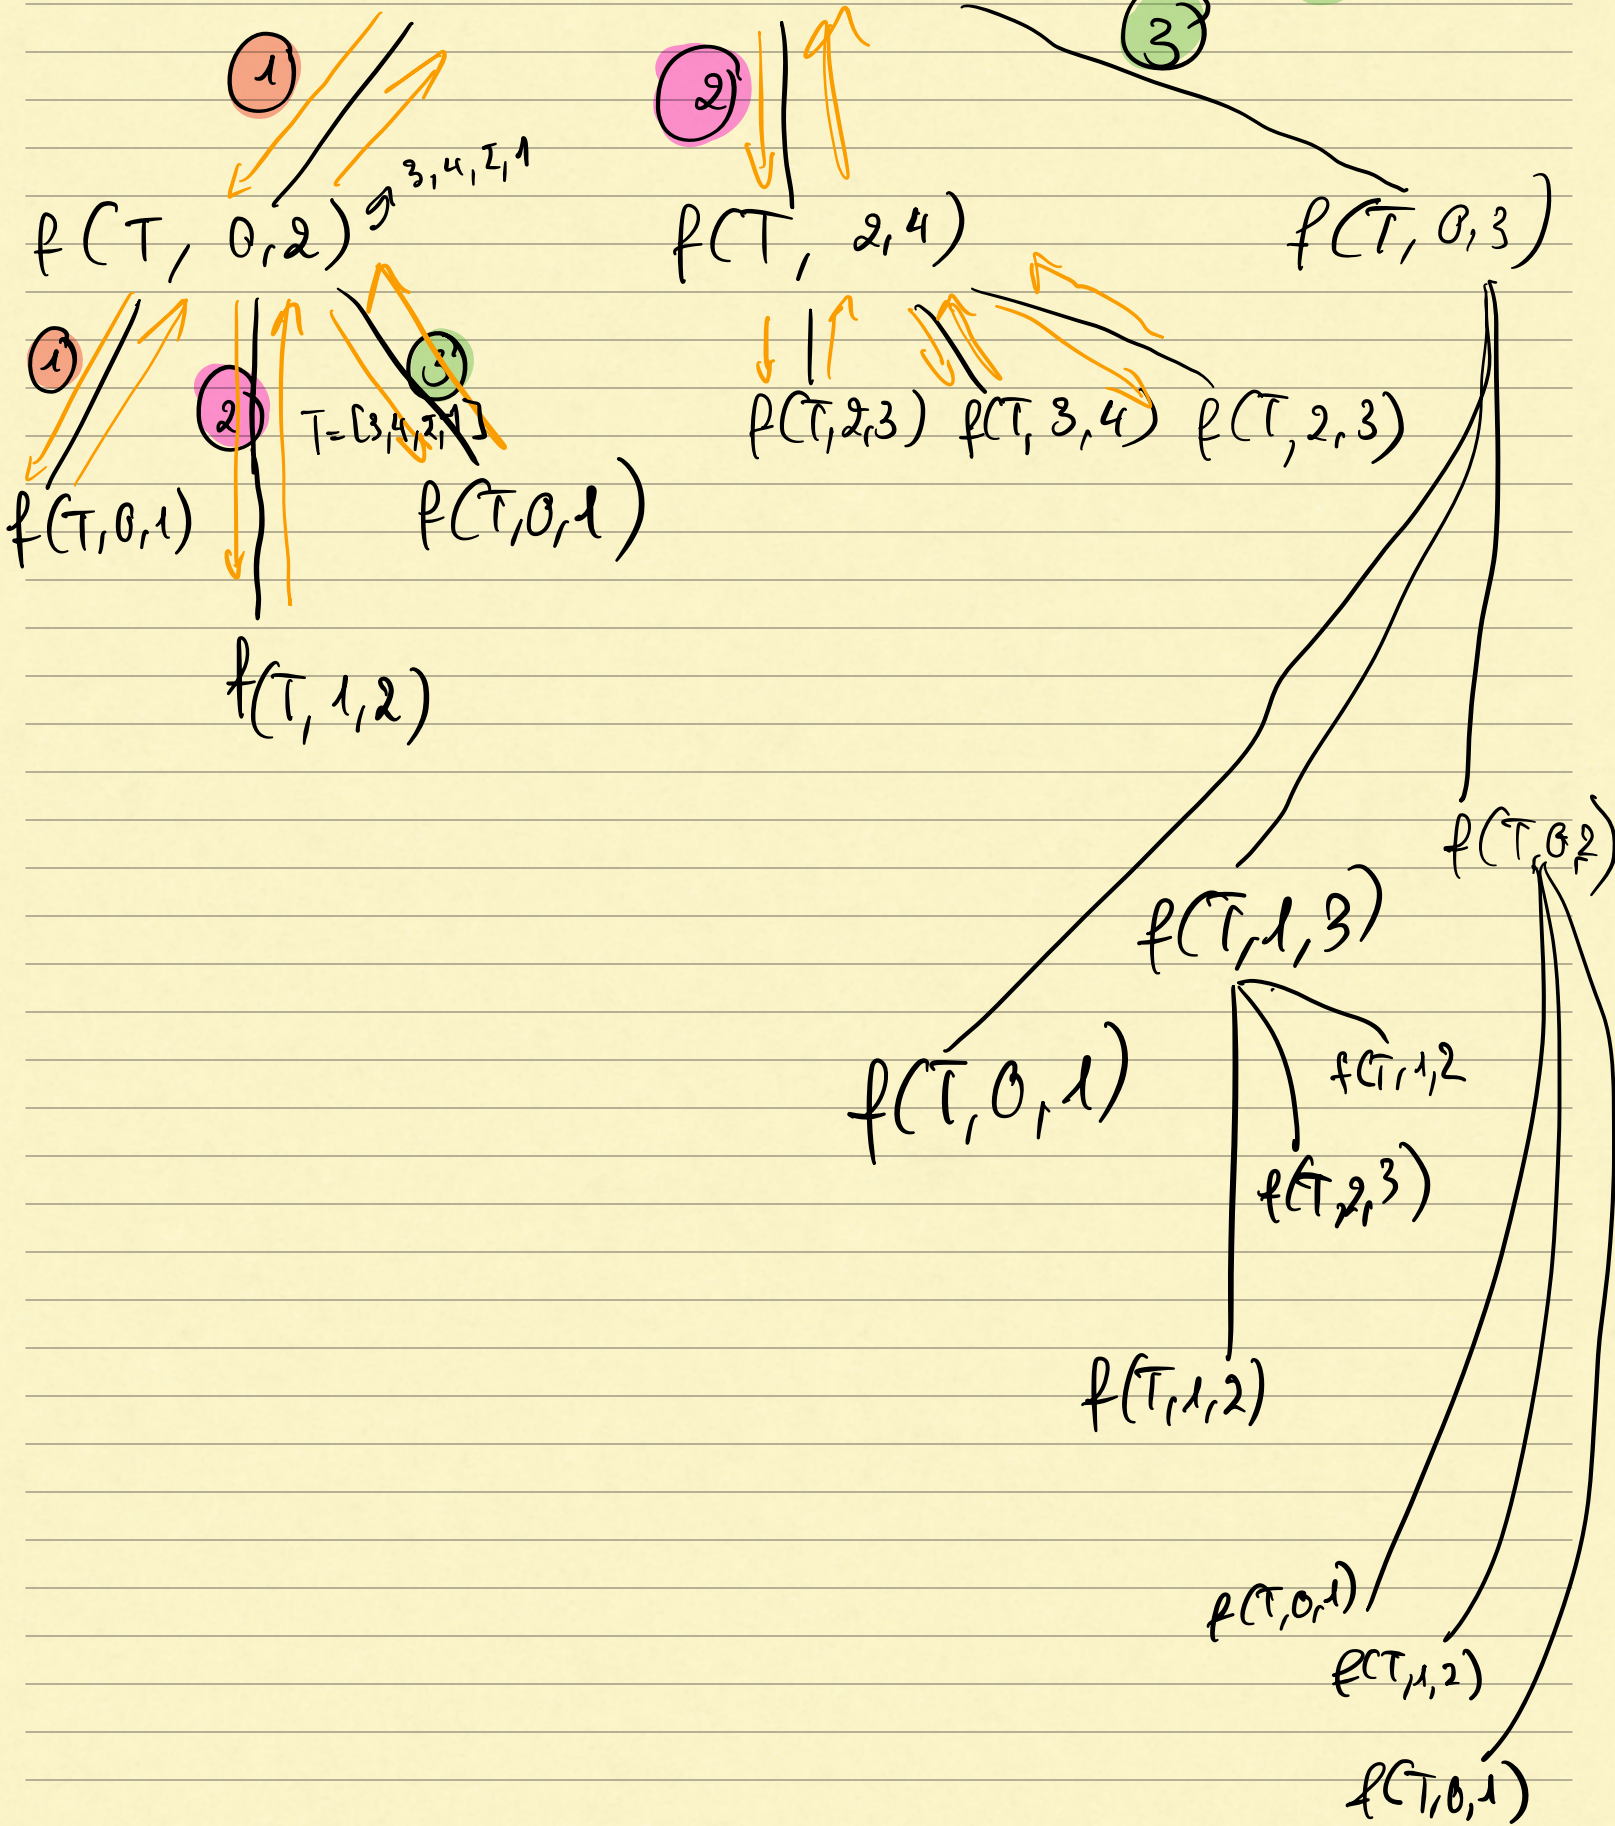 1 2 3
3,4,2,1
f(T, 0,2) f(T, 2,4) f(T, 0,3)
1 2 3
T=[3,4,2,1]
f(T,2,3) f(T, 3,4) f(T, 2,3)
f(T,0,1) f(T,0,1)
f(T,1,2)
f(T,0,2)
f(T,1,3)
f(T,0,1) f(T,1,2
f(T,2,3)
f(T,1,2)
f(T,0,1)
f(T,1,2)
f(T,0,1)